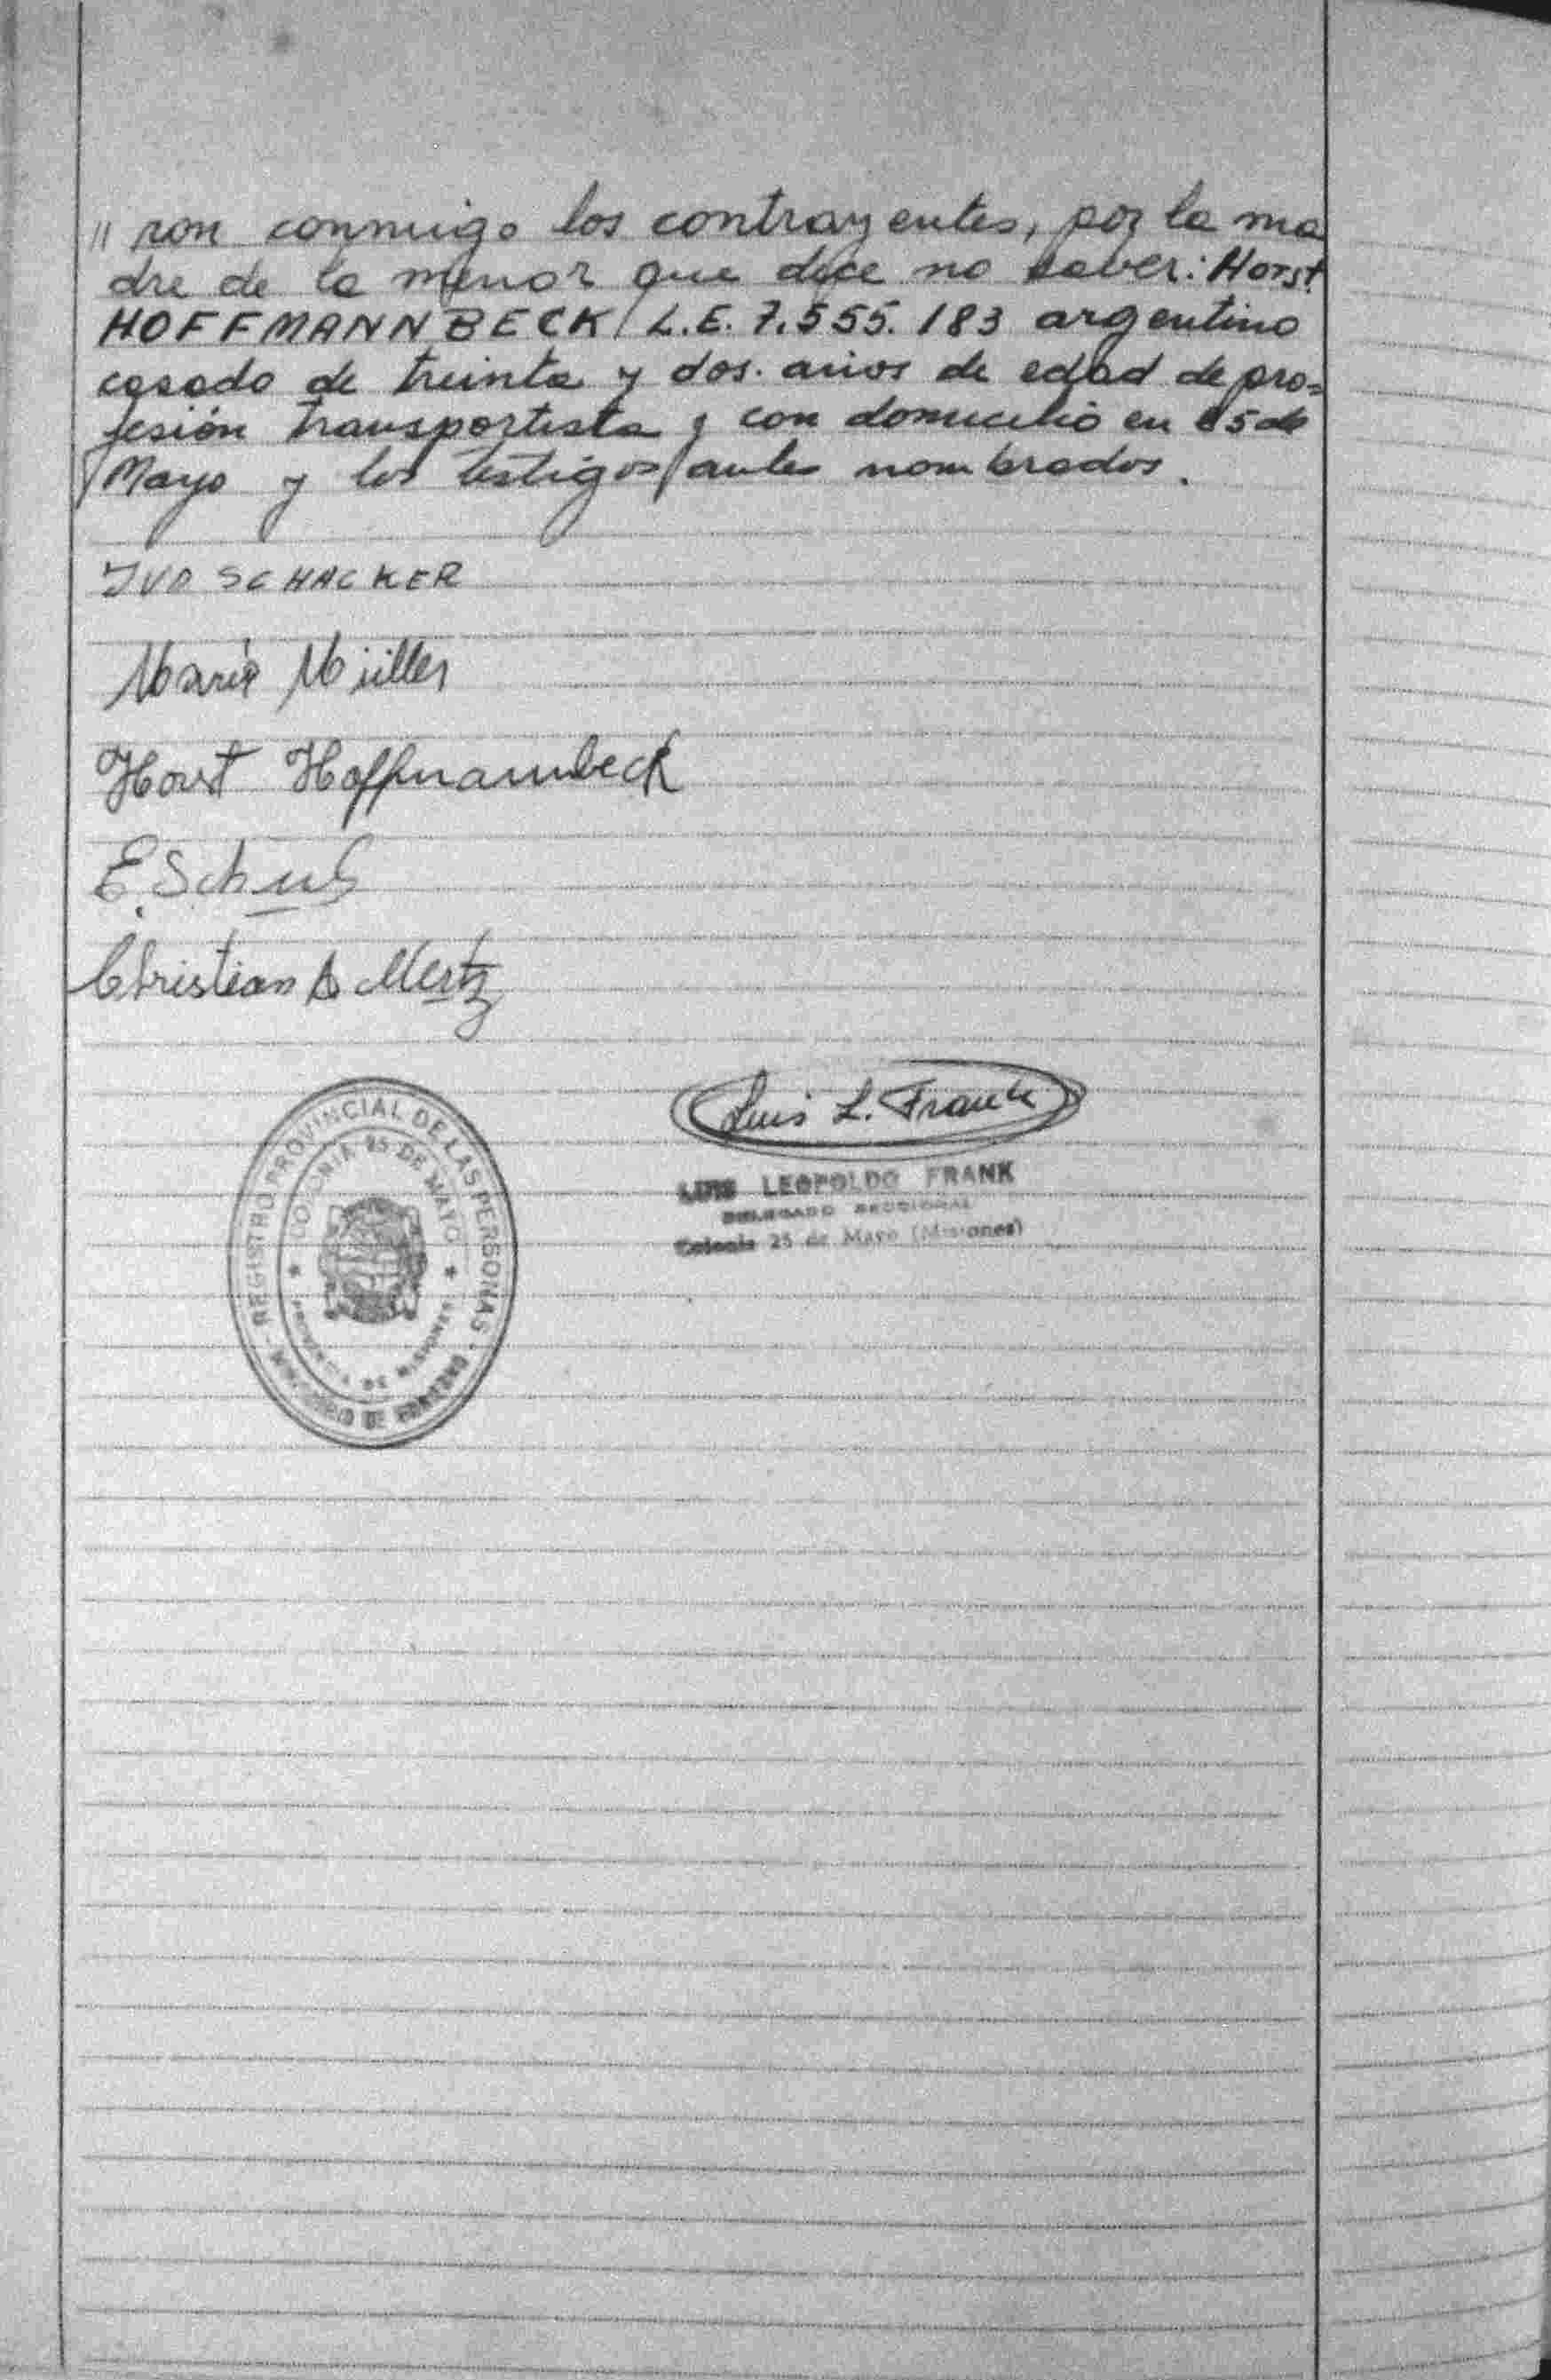 // ron conmigo los contrayentes, por la ma
dre de la menor que dice no saber: Horst
HOFFMANNBECK L.E. 7.555.183 argentino
casado de treinta y dos. años de edad de pro=
fesión transportista y con domicilio en 25 de
Mayo y los testigos antes nombrados.
IVO SCHACKER
Maria Müller
Horst Hoffmannbeck
E. Schulz
Christian A Mertz
Luis L. Frank
LUIS LEOPOLDO FRANK
DELEGADO SECCIONAL
Colonia 25 de Mayo (Misiones)
REGISTRO PROVINCIAL DE LAS PERSONAS -
MINISTERIO DE GOBIERNO
COLONIA 25 DE MAYO
PROVINCIA DE MISIONES